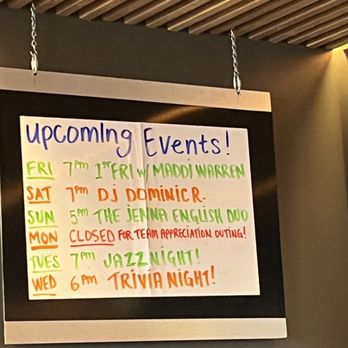 Upcoming Events!
FRI 7pm 1st FRI w/ MADDI WARREN
SAT 7pm DJ DOMINIC R.
SUN 5pm THE JENNA ENGLISH DUO
MON CLOSED FOR TEAM APPRECIATION OUTING!
TUES 7pm JAZZ NIGHT!
WED 6pm TRIVIA NIGHT!